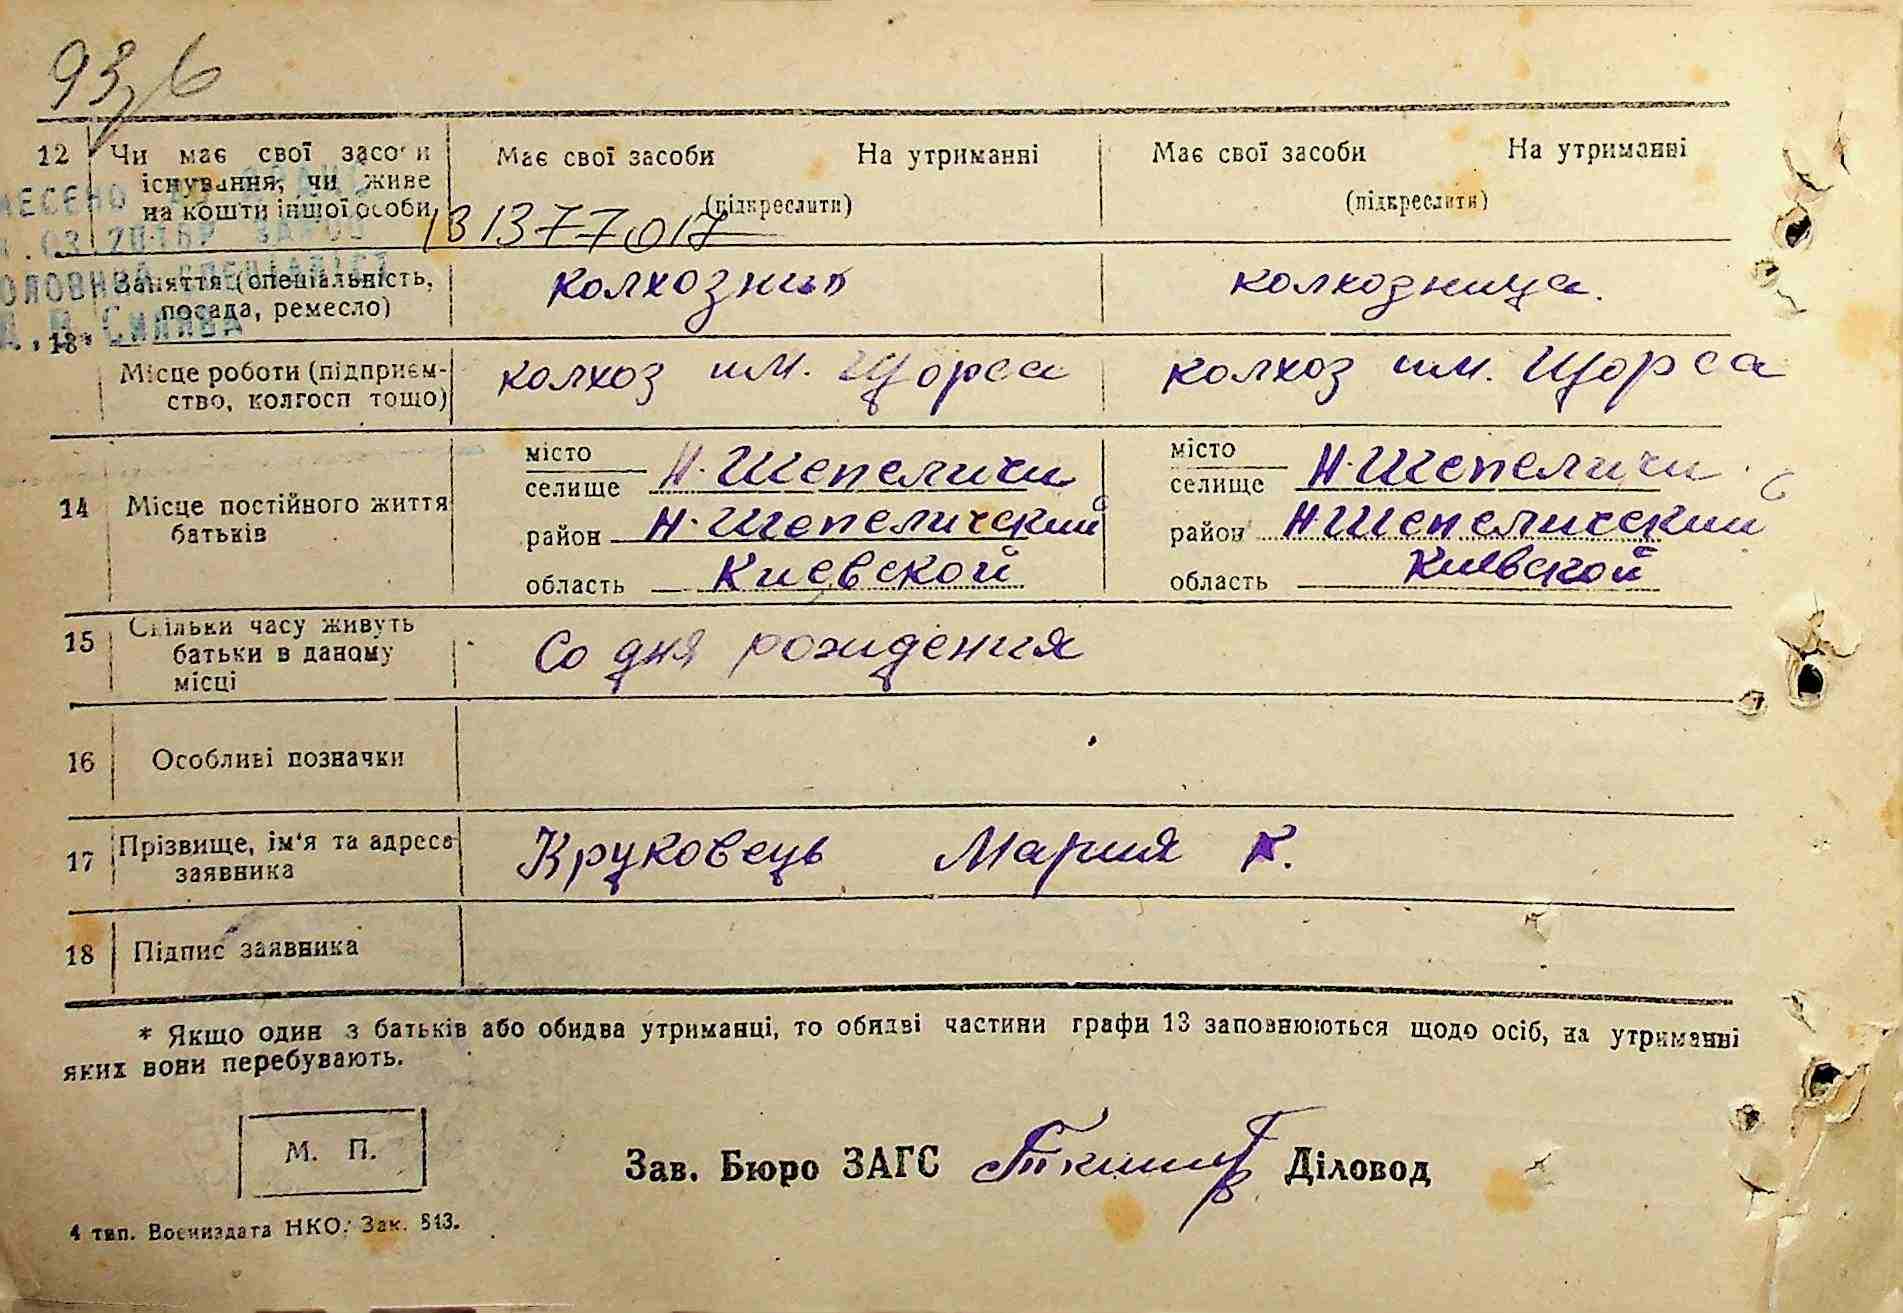 93,6
12 Чи має свої засоби Має свої засоби На утриманні Має свої засоби На утриманні
існування, чи живе (підкреслити) (підкреслити)
на кошти іншої особи 131377017
Заняття (спеціальність, колхозник колхозница.
посада, ремесло)
13*
Місце роботи (підприєм- колхоз им. Щорса колхоз им. Щорса
ство, колгосп тощо)
14 Місце постійного життя батьків
місто селище Н. Шепеличи місто селище Н. Шепеличи
район Н. Шепеличский район Н Шепеличский
область Киевской область Киевской
15 Скільки часу живуть Со дня рождения
батьки в даному
місці
16 Особливі позначки
17 Прізвище, ім'я та адреса Круковець Мария К.
заявника
18 Підпис заявника
* Якщо один з батьків або обидва утриманці, то обидві частини графи 13 заповнюються щодо осіб, на утриманні
яких вони перебувають.
М. П.
Зав. Бюро ЗАГС Діловод
4 тип. Воениздата НКО. Зак. 513.